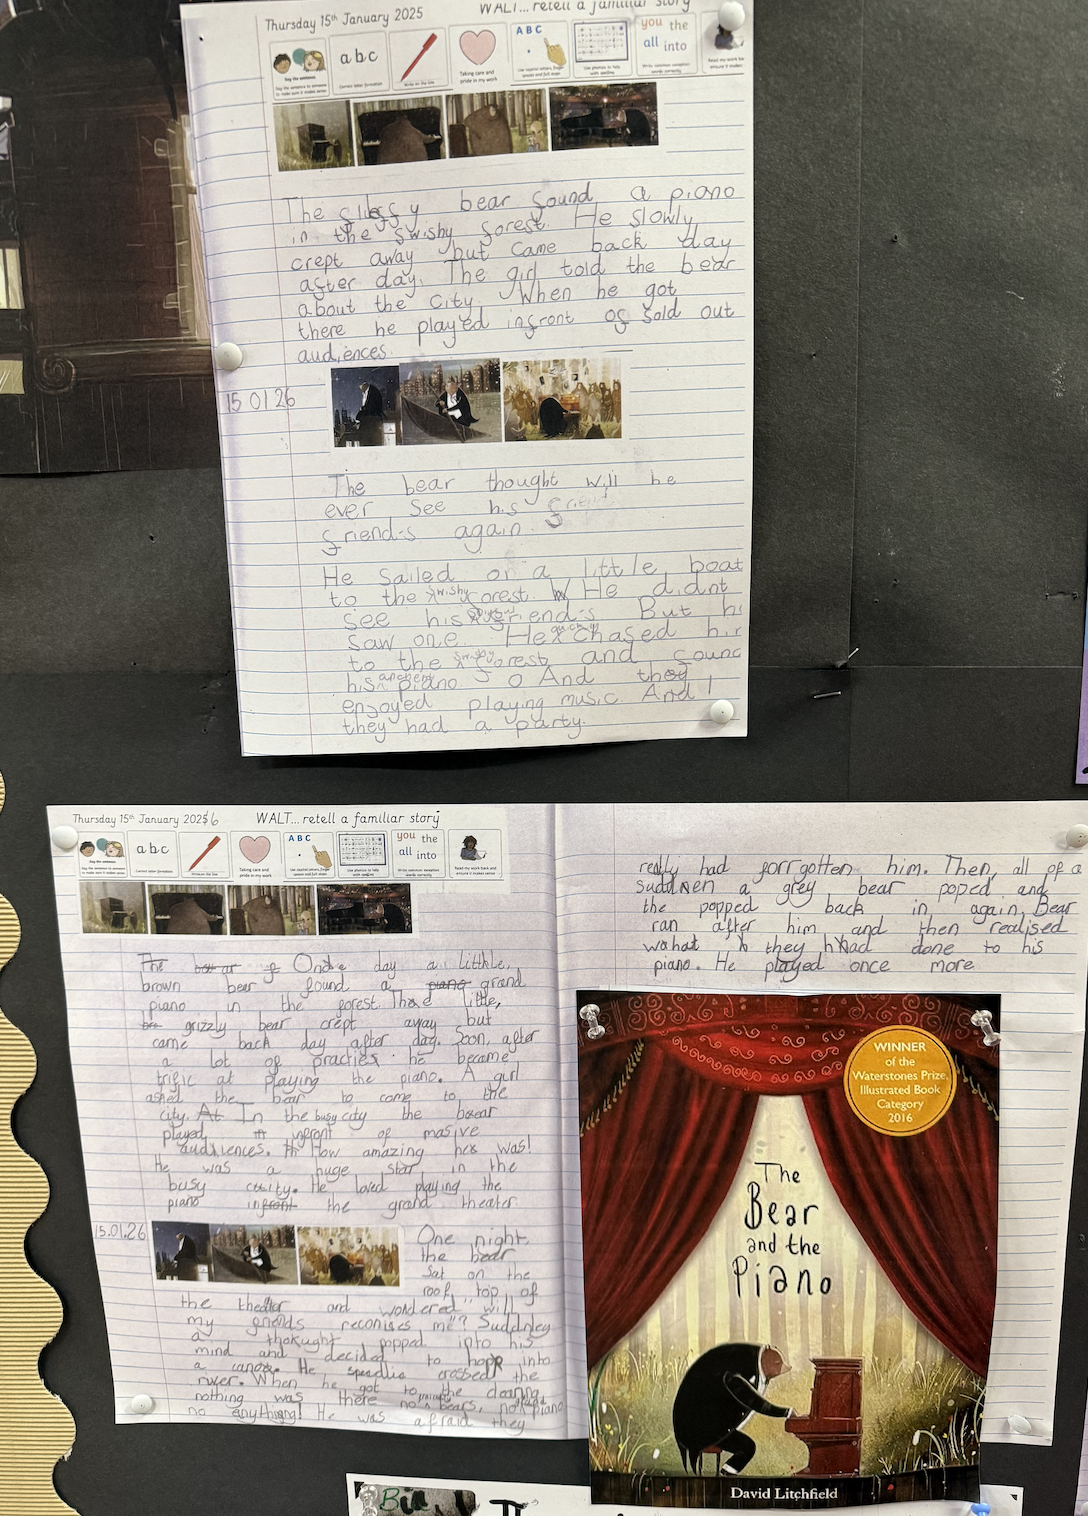 Thursday 15th January 2025
WALT... retell a familiar story
abc
Taking care and pride in my work
ABC
you the
all into
The fluffy bear found a piano
in the swishy forest. He slowly
crept away but came back day
after day. The girl told the bear
about the city. When he got
there he played infront of sold out
audiences.
15 01 26
The bear thought will he
ever see his friend
friends again.
He sailed on a little boat
to the swishy forest. He didnt
see his friends. But h
saw one. He quickly chased hi
to the swishy forest and foun
his anchent piano. And they
enjoyed playing music And
they had a party.
Thursday 15th January 2025 6
WALT... retell a familiar story
abc
Taking care and pride in my work
ABC
you the
all into
The bear Onde day a little,
brown bear found a piano grand
piano in the forest. The little,
grizzly bear crept away but
came back day after day. Soon, after
a lot of practies he became
trific at playing the piano. A girl
asked the bear to come to the
city. At In the busy city the bear
played infront of masive
audiences. How amazing he was!
He was a huge star in the
busy city. He loved playing the
piano infront the grand theater
15.01.26
One night
the bear
sat on the
roof top of
the theator and wondered will
my friends reconises me? Suddnley
a thokught popped into his
mind and decided to hop into
a canoe. He speedlie crosbed the
river. When he got to the clearing
nothing was there no bears, no piano
no anything! He was afraid they
really had forrgotten him. Then, all of a
suddnen a grey bear poped and
the popped back in again, Bear
ran after him and then realised
wahat they had done to his
piano. He played once more
WINNER
of the
Waterstones Prize,
Illustrated Book
Category
2016
The
Bear
and the
Piano
David Litchfield